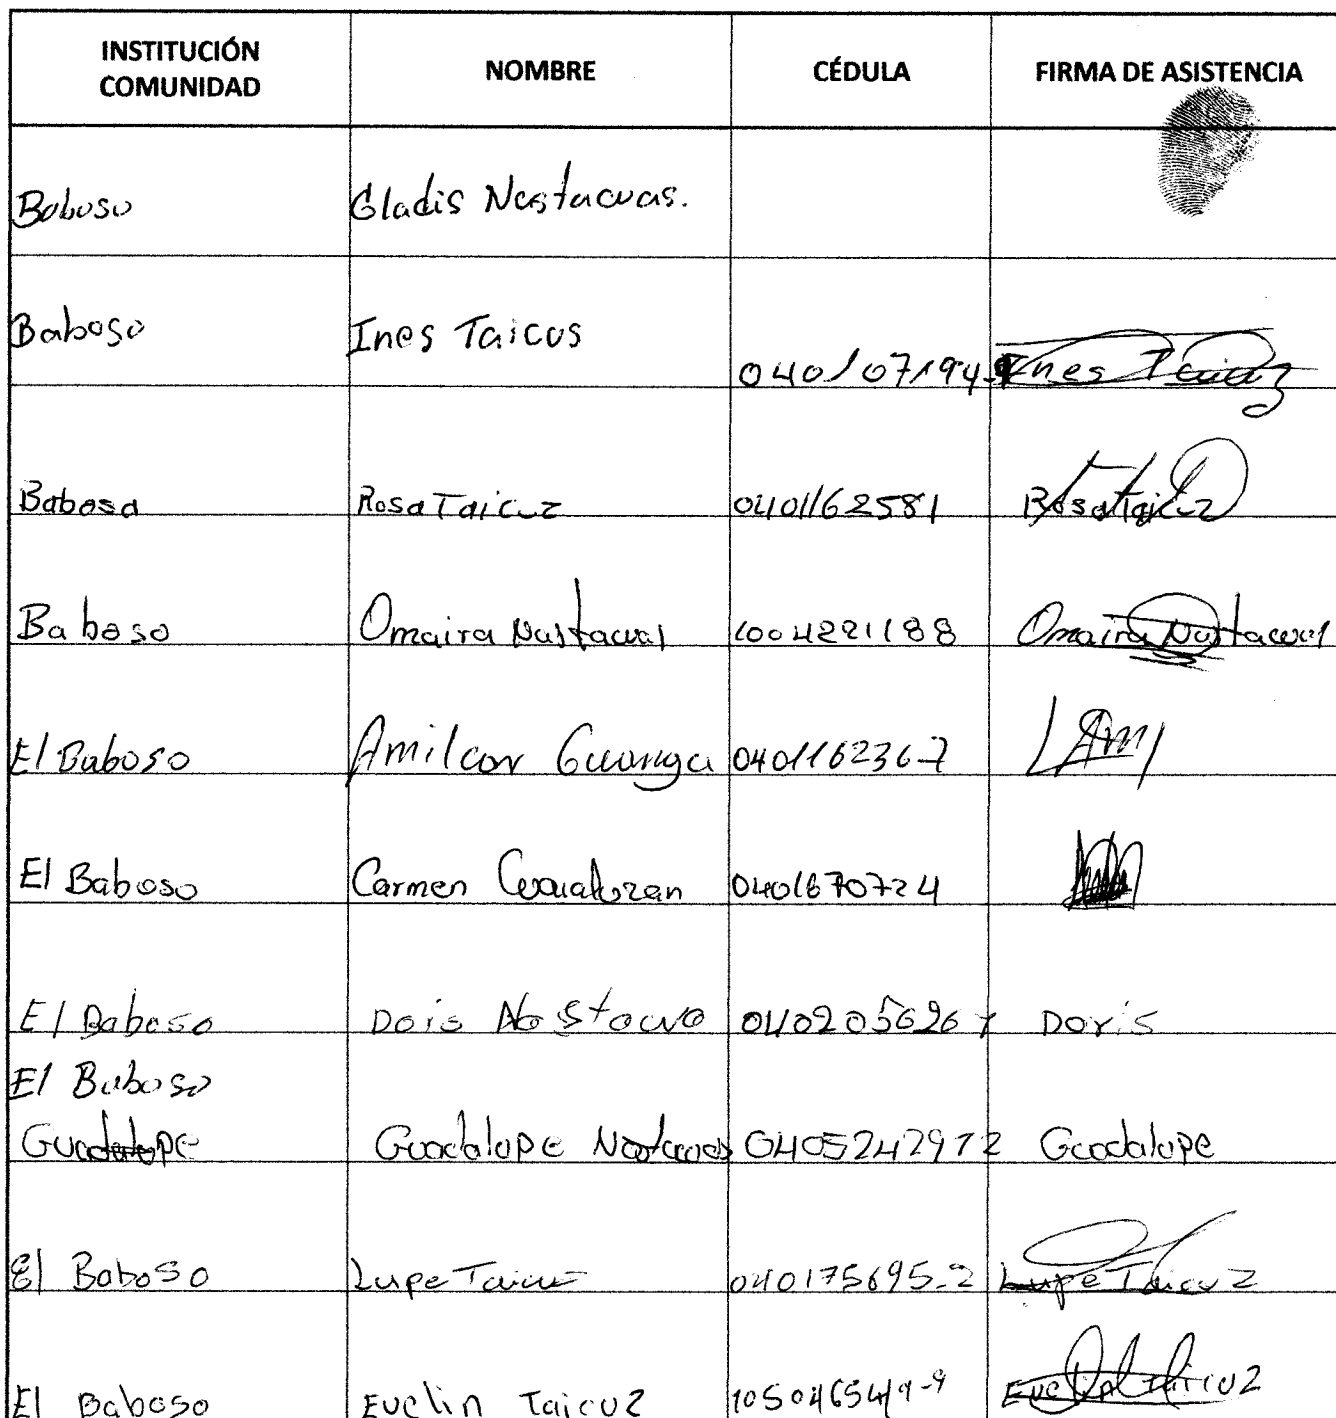 INSTITUCIÓN COMUNIDAD NOMBRE CÉDULA FIRMA DE ASISTENCIA
Baboso Gladis Nastacuas.
Baboso Ines Taicus 040107194-9 Ines Taicuz
Babosa Rosa Taicuz 0401162581 Rosa Taicuz
Baboso Omaira Nastacuas 1004221188 Omaira Nastacuas
El Baboso Amilcar Guanga 040116236-7
El Baboso Carmen 0401670724
El Baboso Dois Nastacua Doris
El Baboso
Guadalupe Guadalupe Nastacuas 0405242972 Guadalupe
El Baboso Lupe Taicuz 040175695-2 Lupe Taicuz
El Baboso Evelin Taicuz 105046549-9 Evelin Taicuz